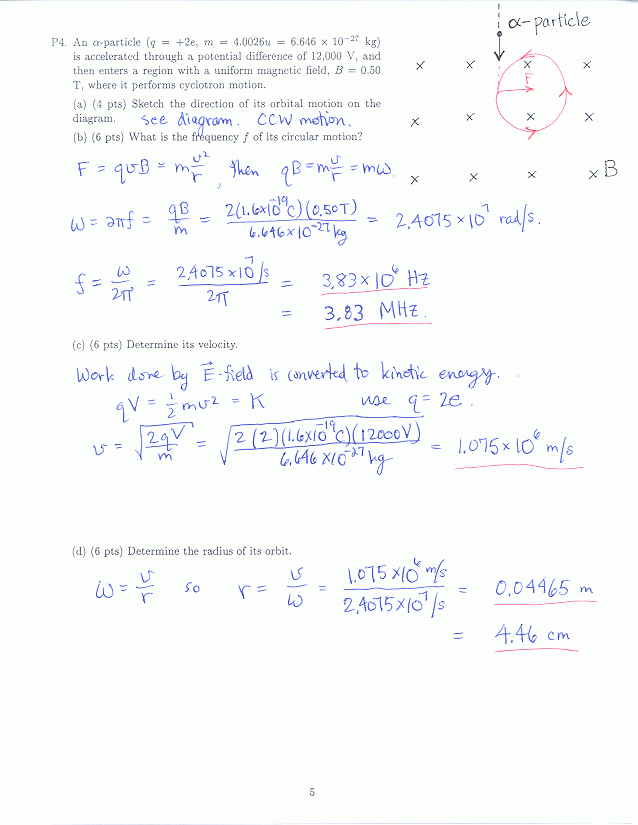 α-particle
P4. An α-particle (q = +2e, m = 4.0026u = 6.646 × 10⁻²⁷ kg)
is accelerated through a potential difference of 12,000 V, and
then enters a region with a uniform magnetic field, B = 0.50
T, where it performs cyclotron motion.
× × × ×
F
(a) (4 pts) Sketch the direction of its orbital motion on the
diagram. See diagram. CCW motion.
× × × ×
(b) (6 pts) What is the frequency f of its circular motion?
F = qvB = m v²/r, then qB = m v/r = mω.
× × × × B
ω = 2πf = qB/m = 2(1.6×10⁻¹⁹C)(0.50T)/6.646×10⁻²⁷kg = 2.4075×10⁷ rad/s.
f = ω/2π = 2.4075×10⁷/s / 2π = 3.83×10⁶ Hz
= 3.83 MHz.
(c) (6 pts) Determine its velocity.
Work done by E⃗-field is converted to kinetic energy.
qV = ½mv² = K use q = 2e.
v = √(2qV/m) = √(2(2)(1.6×10⁻¹⁹C)(12000V)/6.646×10⁻²⁷kg) = 1.075×10⁶ m/s
(d) (6 pts) Determine the radius of its orbit.
ω = v/r so r = v/ω = 1.075×10⁶ m/s / 2.4075×10⁷/s = 0.04465 m
= 4.46 cm
5